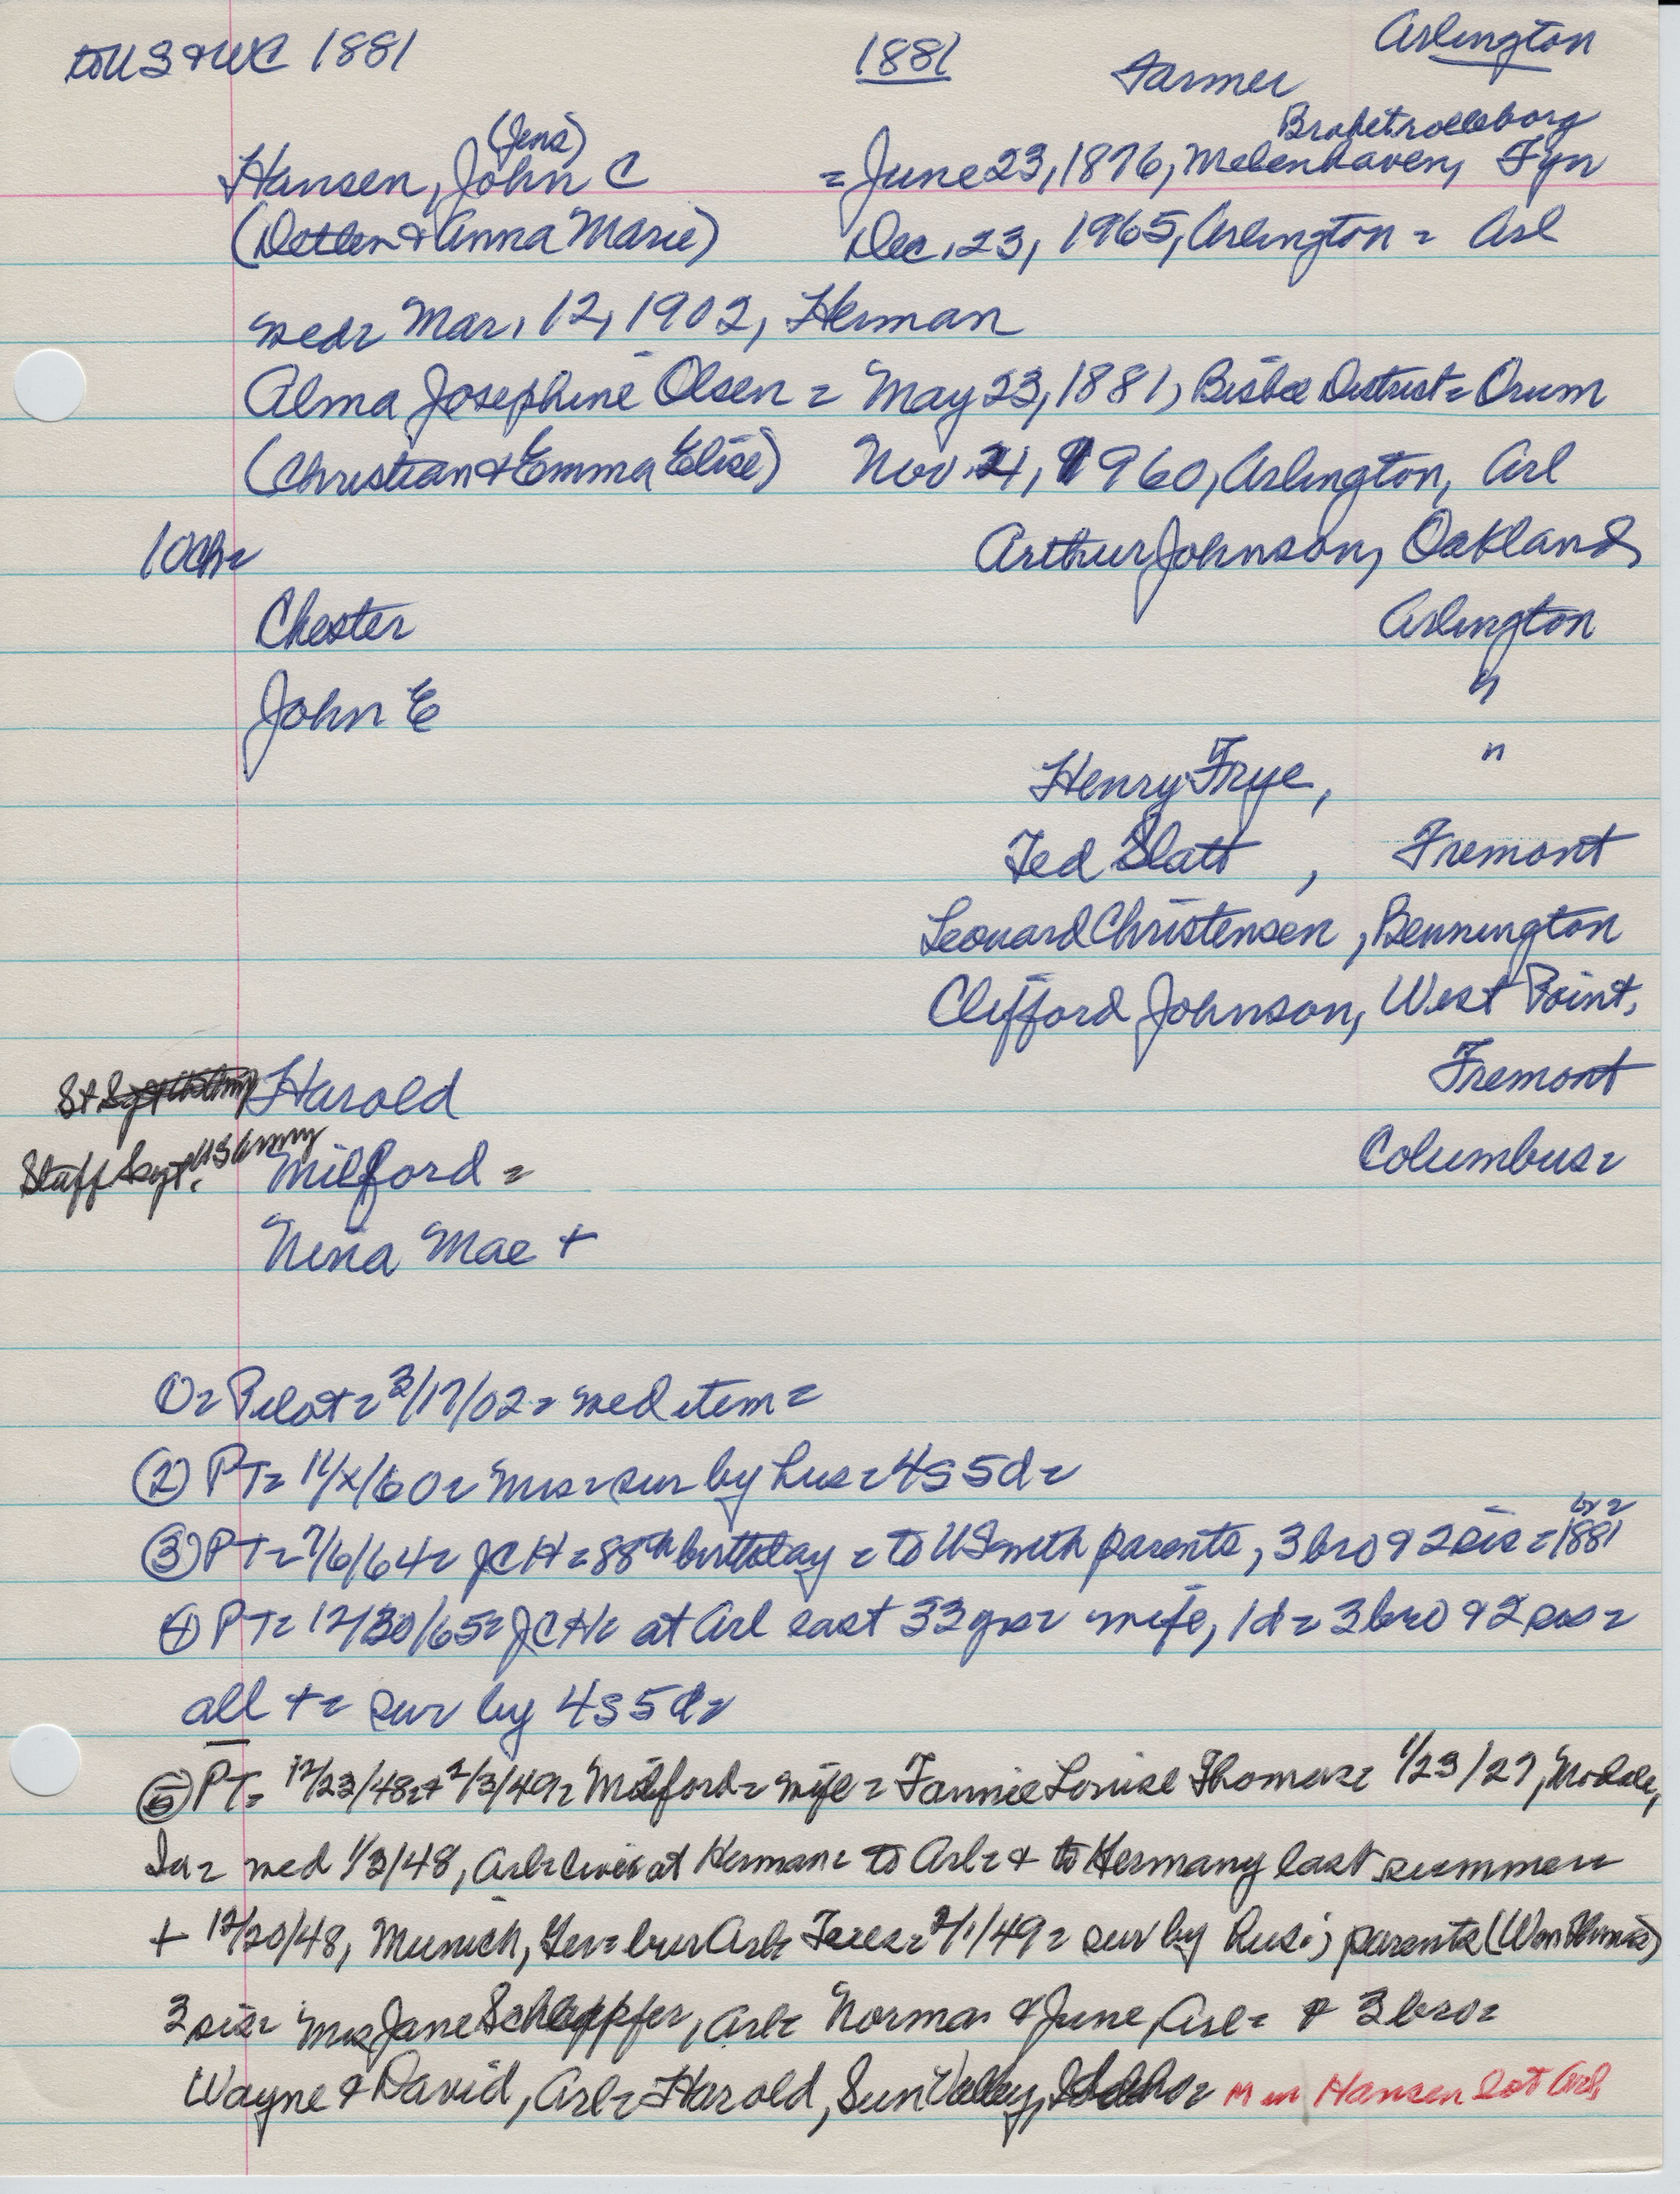 to US & WC 1881 1881 Farmer Arlington
(Jens) Brahetrolleborg
Hansen, John C = June 23, 1876, Mebenhaven, Fyn
(Detlen & Anna Marie) Dec. 23, 1965, Arlington = Arl
wed= Mar. 12, 1902, Herman
Alma Josephine Olsen = May 23, 1881, Bisbee District = Orum
(Christian & Emma Elise) Nov 24, 1960, Arlington, Arl
10ch= Arthur Johnson, Oakland,
Chester Arlington
John E "
Henry Frye, "
Ted Slatt, Fremont
Leonard Christensen, Bennington
Clifford Johnson, West Point,
St Sgt US Army Harold Fremont
Staff Sgt. US Army Milford = Columbus=
Nina Mae +
①= Pilot= 3/17/02= wed item=
② PT= 11/x/60= Mrs= sur by hus= 4s 5d=
③ PT= 7/6/64= JCH= 88th birthday = to US with parents, 3 bro & 2 sis = by 1881
④ PT= 12/30/65= JCH= at Arl last 33 yrs= wife, 1d= 3 bro & 2 sis=
all += sur by 4s 5d=
⑤ PT= 12/23/48= + 2/3/49= Milford= wife= Fannie Louise Thomas= 1/23/27, Modale,
Ia= wed 1/3/48, Arl= lives at Herman= to Arl= & to Germany last summer=
+ 12/20/48, Munich, Ger= bur Arl= Tues= 2/1/49= sur by hus; parents (Wm Thomas)
3 sis= Mrs Jane Schlapfer, Arl= Norma & June, Arl= & 3 bro=
Wayne & David, Arl= Harold, Sun Valley, Idaho= M in Hansen lot Arl